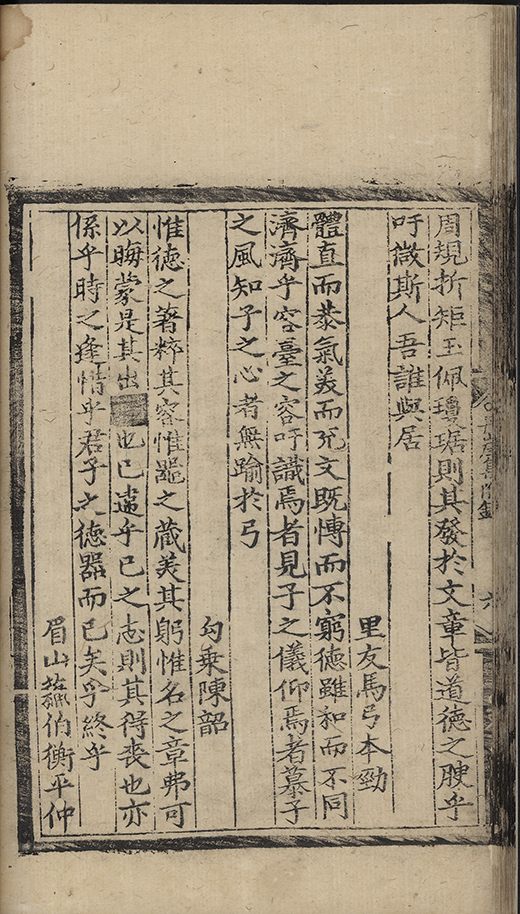 周規折矩玉佩瓊琚則其發於文章皆道德之腴乎
吁微斯人吾誰與居
里友馬弓本勁
體直而恭氣美而充文既愽而不窮德雖和而不同
濟濟乎容臺之容吁識焉者見子之儀仰焉者慕子
之風知子之心者無踰於弓
勾乘陳韶
惟徳之著粹其容惟器之蔵美其躬惟名之章弗可
以晦蒙是其出也已違乎已之志則其得喪也亦
係乎時之逢惜乎君子之徳器而已矣乎終乎
眉山蘓伯衡平仲